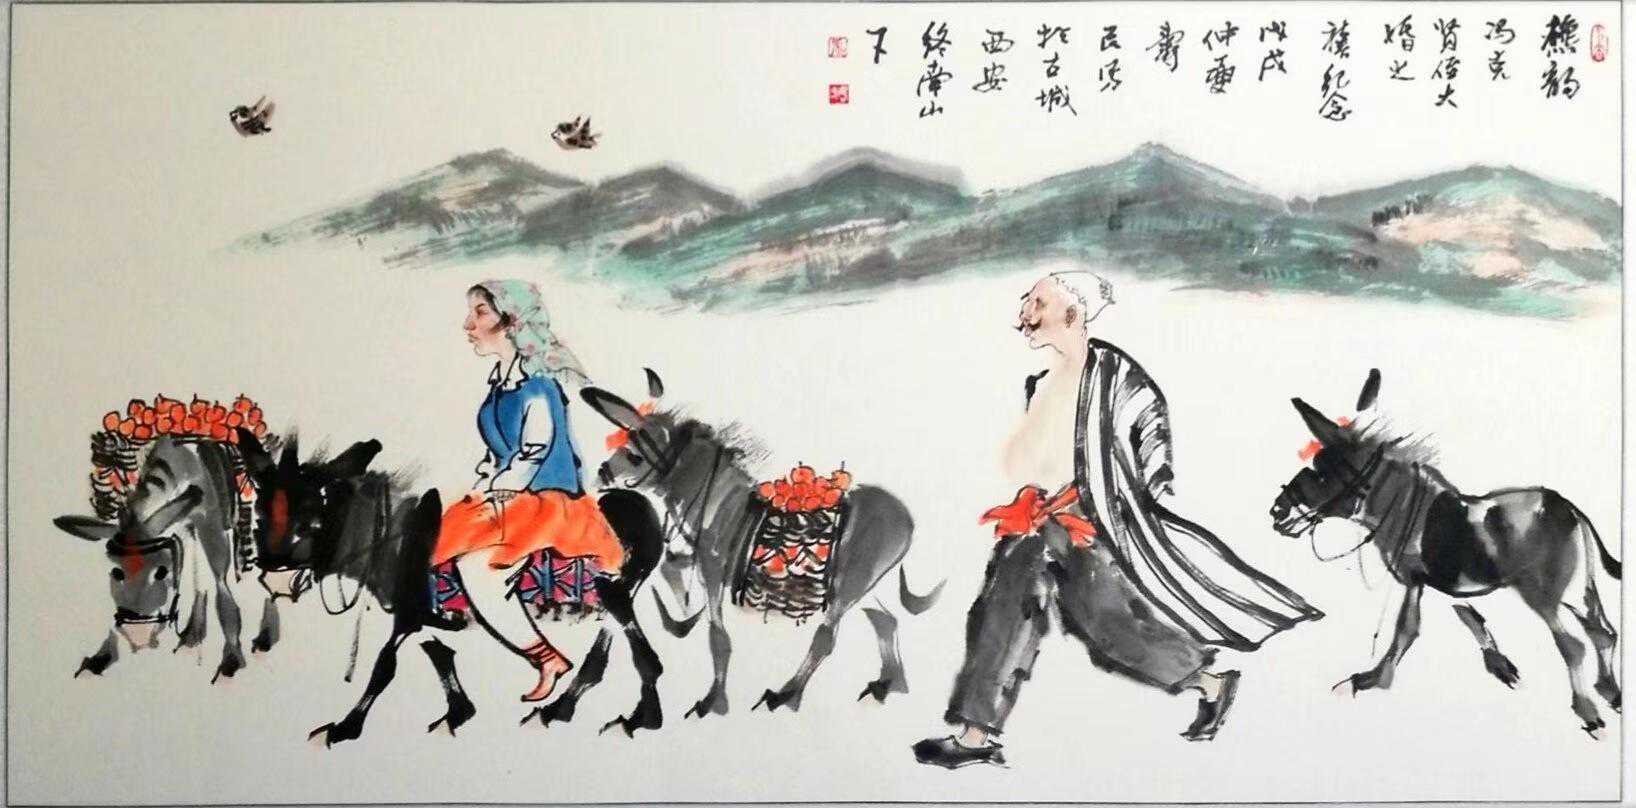 冯克
贤侄大
婚之
禧纪念
戊戌
仲夏
壽
民写
於古城
西安
终南山
下